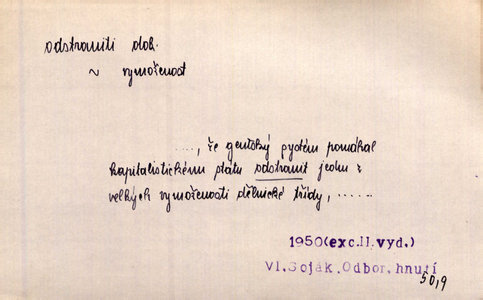 odstraniti dok.
~ vymoženost
...., že gentský systém pomáhal
kapitalistickému státu odstranit jednu z
velkých vymožeností dělnické třídy, ......
1950(exc.II.vyd.)
Vl.Soják.Odbor.hnutí
50,9